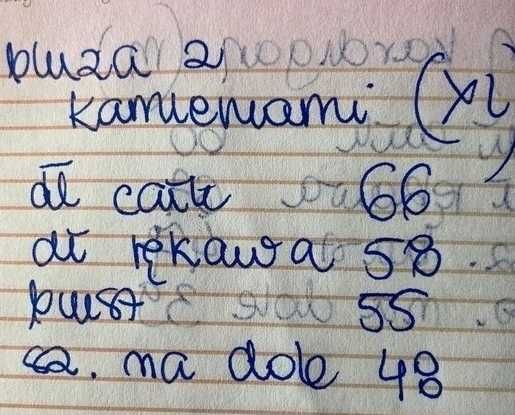 bluza z
kamieniami (XL)
dł całk 66
dł rękawa 58
biust 55
sz. na dole 48